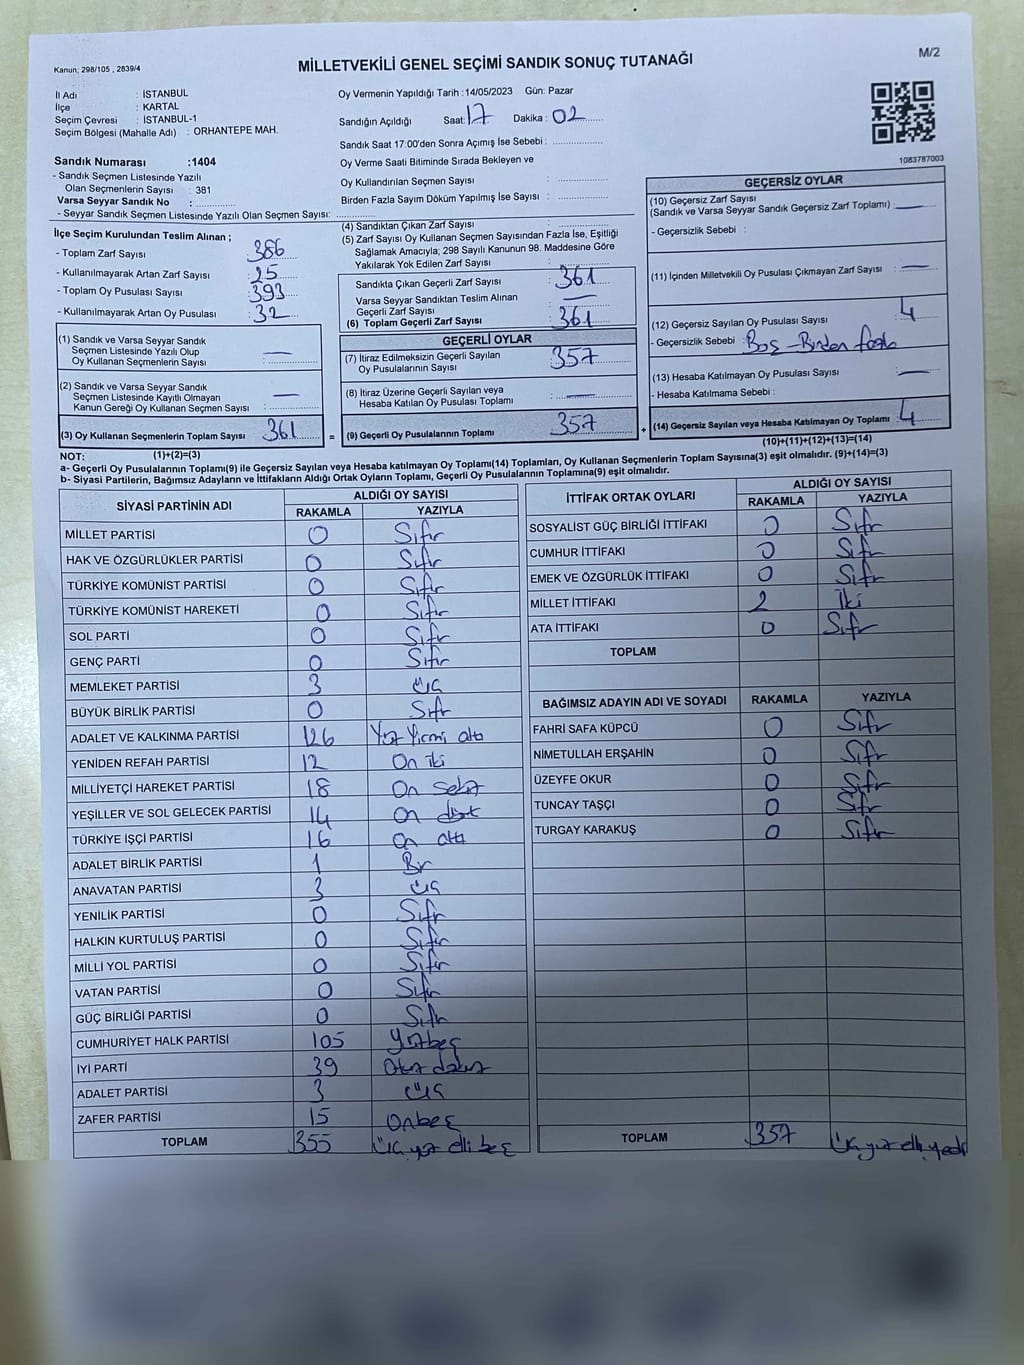 Kanun; 298/105 , 2839/4
MİLLETVEKİLİ GENEL SEÇİMİ SANDIK SONUÇ TUTANAĞI
M/2
İl Adı : İSTANBUL
İlçe : KARTAL
Seçim Çevresi : İSTANBUL-1
Seçim Bölgesi (Mahalle Adı) : ORHANTEPE MAH.
Sandık Numarası :1404
- Sandık Seçmen Listesinde Yazılı
Olan Seçmenlerin Sayısı : 381
Varsa Seyyar Sandık No :
- Seyyar Sandık Seçmen Listesinde Yazılı Olan Seçmen Sayısı:
Oy Vermenin Yapıldığı Tarih :14/05/2023 Gün: Pazar
Sandığın Açıldığı Saat: 17 Dakika : 02
Sandık Saat 17:00'den Sonra Açımış İse Sebebi :
Oy Verme Saati Bitiminde Sırada Bekleyen ve
Oy Kullandırılan Seçmen Sayısı :
Birden Fazla Sayım Döküm Yapılmış İse Sayısı :
1083787003
İlçe Seçim Kurulundan Teslim Alınan ;
- Toplam Zarf Sayısı : 386
- Kullanılmayarak Artan Zarf Sayısı : 25
- Toplam Oy Pusulası Sayısı : 393
- Kullanılmayarak Artan Oy Pusulası : 32
(1) Sandık ve Varsa Seyyar Sandık
Seçmen Listesinde Yazılı Olup
Oy Kullanan Seçmenlerin Sayısı : —
(2) Sandık ve Varsa Seyyar Sandık
Seçmen Listesinde Kayıtlı Olmayan
Kanun Gereği Oy Kullanan Seçmen Sayısı : —
(3) Oy Kullanan Seçmenlerin Toplam Sayısı : 361
(4) Sandıktan Çıkan Zarf Sayısı :
(5) Zarf Sayısı Oy Kullanan Seçmen Sayısından Fazla İse, Eşitliği
Sağlamak Amacıyla; 298 Sayılı Kanunun 98. Maddesine Göre
Yakılarak Yok Edilen Zarf Sayısı :
Sandıkta Çıkan Geçerli Zarf Sayısı : 361
Varsa Seyyar Sandıktan Teslim Alınan
Geçerli Zarf Sayısı : —
(6) Toplam Geçerli Zarf Sayısı : 361
GEÇERLİ OYLAR
(7) İtiraz Edilmeksizin Geçerli Sayılan
Oy Pusulalarının Sayısı : 357
(8) İtiraz Üzerine Geçerli Sayılan veya
Hesaba Katılan Oy Pusulası Toplamı : —
= (9) Geçerli Oy Pusulalarının Toplamı : 357 +
GEÇERSİZ OYLAR
(10) Geçersiz Zarf Sayısı
(Sandık ve Varsa Seyyar Sandık Geçersiz Zarf Toplamı) : —
- Geçersizlik Sebebi :
(11) İçinden Milletvekili Oy Pusulası Çıkmayan Zarf Sayısı : —
(12) Geçersiz Sayılan Oy Pusulası Sayısı : 4
- Geçersizlik Sebebi : Boş - Birden fazla
(13) Hesaba Katılmayan Oy Pusulası Sayısı : —
- Hesaba Katılmama Sebebi :
(14) Geçersiz Sayılan veya Hesaba Katılmayan Oy Toplamı : 4
NOT: (1)+(2)=(3)
(10)+(11)+(12)+(13)=(14)
a- Geçerli Oy Pusulalarının Toplamı(9) ile Geçersiz Sayılan veya Hesaba katılmayan Oy Toplamı(14) Toplamları, Oy Kullanan Seçmenlerin Toplam Sayısına(3) eşit olmalıdır. (9)+(14)=(3)
b- Siyasi Partilerin, Bağımsız Adayların ve İttifakların Aldığı Oyların Toplamı, Geçerli Oy Pusulalarının Toplamına(9) eşit olmalıdır.
SİYASİ PARTİNİN ADI ALDIĞI OY SAYISI
RAKAMLA YAZIYLA
MİLLET PARTİSİ 0 Sıfır
HAK VE ÖZGÜRLÜKLER PARTİSİ 0 Sıfır
TÜRKİYE KOMÜNİST PARTİSİ 0 Sıfır
TÜRKİYE KOMÜNİST HAREKETİ 0 Sıfır
SOL PARTİ 0 Sıfır
GENÇ PARTİ 0 Sıfır
MEMLEKET PARTİSİ 3 üç
BÜYÜK BİRLİK PARTİSİ 0 Sıfır
ADALET VE KALKINMA PARTİSİ 126 Yüz Yirmi altı
YENİDEN REFAH PARTİSİ 12 On iki
MİLLİYETÇİ HAREKET PARTİSİ 18 On sekiz
YEŞİLLER VE SOL GELECEK PARTİSİ 14 On dört
TÜRKİYE İŞÇİ PARTİSİ 16 On altı
ADALET BİRLİK PARTİSİ 1 Bir
ANAVATAN PARTİSİ 3 üç
YENİLİK PARTİSİ 0 Sıfır
HALKIN KURTULUŞ PARTİSİ 0 Sıfır
MİLLİ YOL PARTİSİ 0 Sıfır
VATAN PARTİSİ 0 Sıfır
GÜÇ BİRLİĞİ PARTİSİ 0 Sıfır
CUMHURİYET HALK PARTİSİ 105 Yüzbeş
İYİ PARTİ 39 Otuz dokuz
ADALET PARTİSİ 3 üç
ZAFER PARTİSİ 15 Onbeş
TOPLAM 355 üç yüz elli beş
İTTİFAK ORTAK OYLARI ALDIĞI OY SAYISI
RAKAMLA YAZIYLA
SOSYALİST GÜÇ BİRLİĞİ İTTİFAKI 0 Sıfır
CUMHUR İTTİFAKI 0 Sıfır
EMEK VE ÖZGÜRLÜK İTTİFAKI 0 Sıfır
MİLLET İTTİFAKI 2 İki
ATA İTTİFAKI 0 Sıfır
TOPLAM
BAĞIMSIZ ADAYIN ADI VE SOYADI RAKAMLA YAZIYLA
FAHRİ SAFA KÜPCÜ 0 Sıfır
NİMETULLAH ERŞAHİN 0 Sıfır
ÜZEYFE OKUR 0 Sıfır
TUNCAY TAŞÇI 0 Sıfır
TURGAY KARAKUŞ 0 Sıfır
TOPLAM 357 üç yüz elli yedi